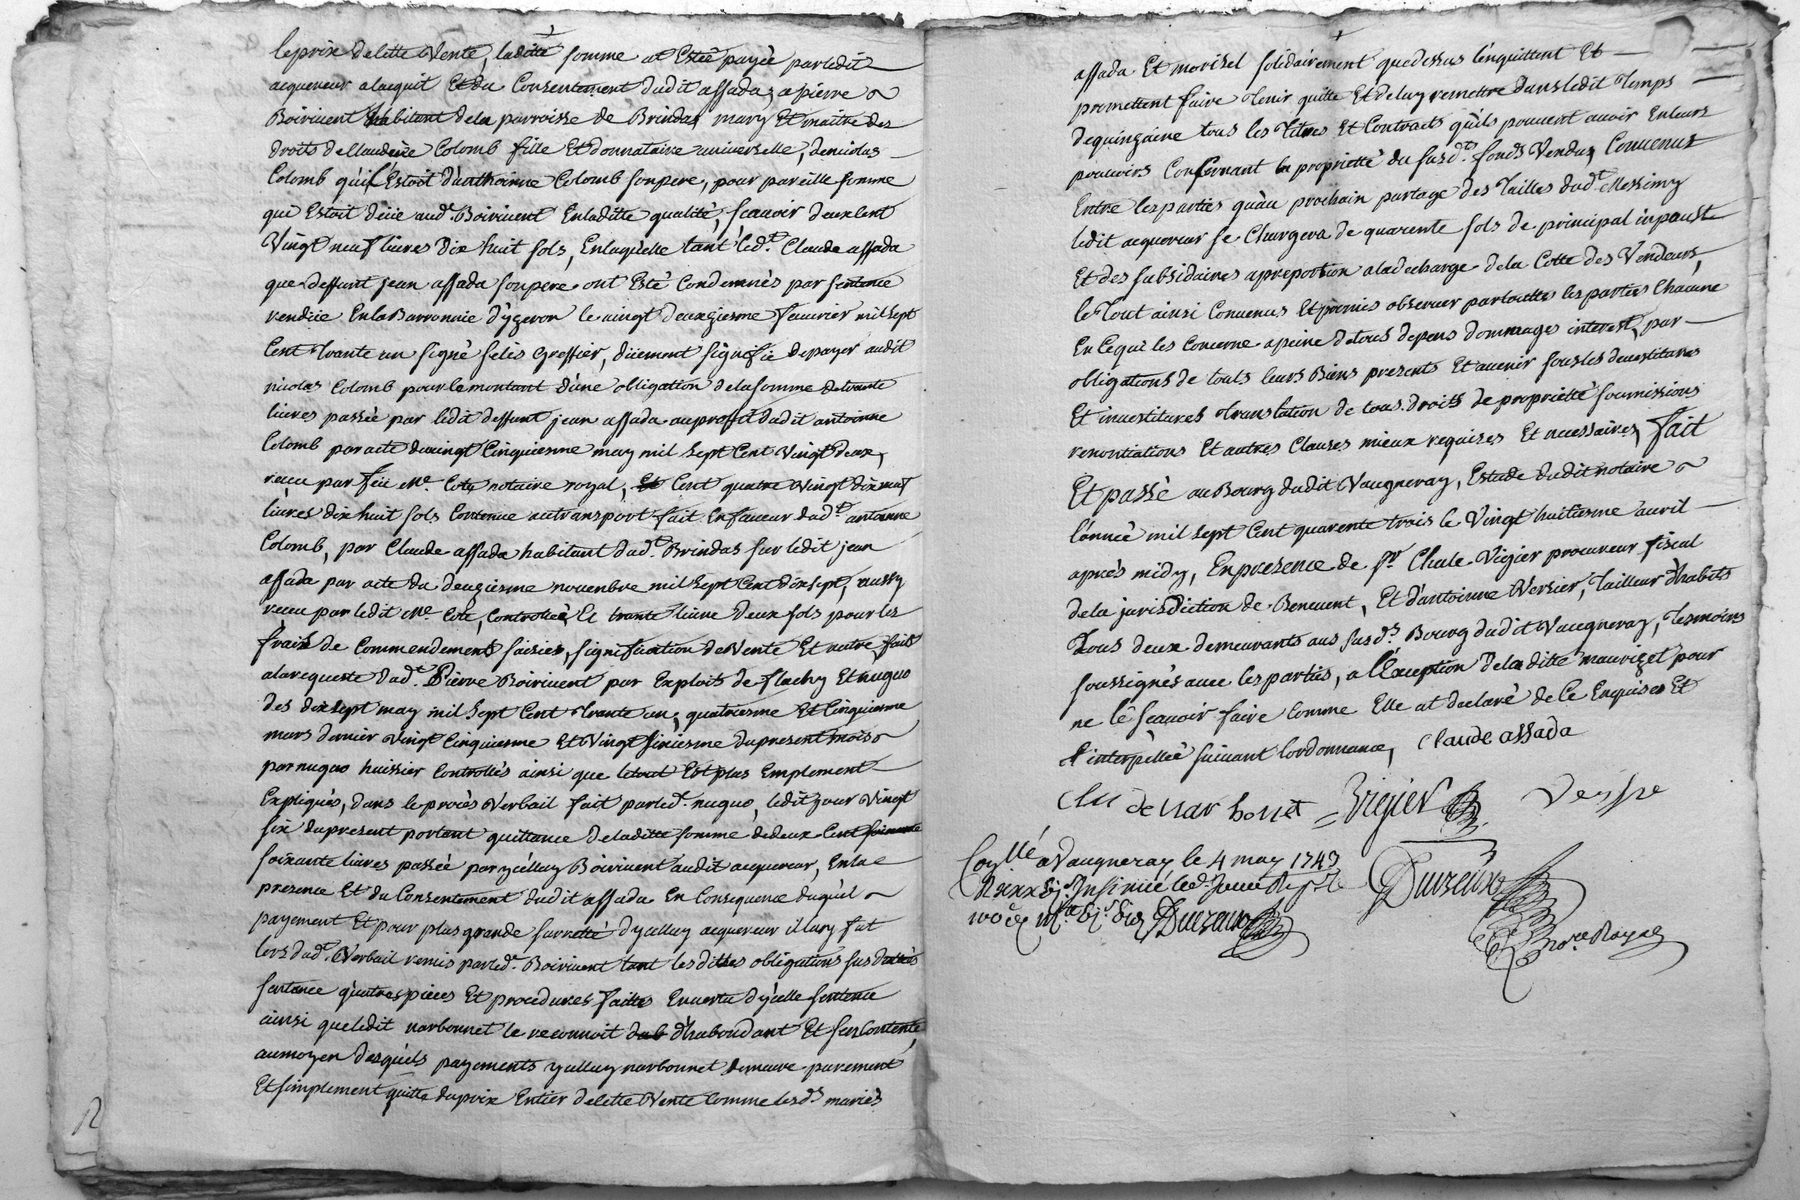 le prix de cette Vente, laditte somme at Esté payée par ledit
acquereur alacquit Et du Consentement dudit assada, a pierre
Boirivent habitant dela parroisse de Brindas, mary Et maitre des
droits de Claudine Colomb fille Et donnataire universelle, de nicolas
Colomb qu'il Estoit d'anthoinne Colomb son pere, pour pareille somme
qui Estoit düe aud. Boirivent En laditte qualité, scavoir deux Cent
Vingt neuf livres Dix huit sols, En laquelle tant led.t Claude assada
que deffunt jean assada son pere ont Esté Condemnés par sentence
rendüe En la Barronnie d'yzeron le vingt deuxziesme feuvrier mil sept
Cent trante un signé selis Greffier, düement signifié de payer audit
nicolas Colomb pour le montant d'une obligation de la somme de trante
livres passée par ledit deffunt jean assada au proffit dudit antoinne
Colomb par acte du vingt Cinquiesme may mil sept Cent Vingt deux,
reçu par feu Me. Cote notaire royal, Cent quatre Vingt dix neuf
livres dix huit sols Contenüe au transport fait En faveur dud.t antoinne
Colomb, par Claude assada habitant dud.t Brindas sur ledit jean
assada par acte du deuziesme novembre mil sept Cent dix sept, aussy
reçu par ledit Me. Cote, Controllée, Et trante livre deux sols pour les
frais de Commendement saisies, signification de Vente Et autre faits
ala requeste dud.t Pierre Boirivent par Exploits de flachy Et nuguo
des dix sept may mil sept Cent trante un, quatriesme Et Cinquiesme
mars dernier Vingt Cinquiesme Et Vingt sixiesme du present mois
par nuguo huissier Controllés ainsi que letout Est plus Emplement
Expliqués, dans le procès Verbail fait par led. nuguo, ledit jour Vingt
six du present portant quittance de laditte somme de deux Cent soixante
soixante livres passée par ycelluy Boirivent audit acquereur, En la
presence Et du Consentement dudit assada En Consequence duquel
payement Et pour plus grande surretté d'ycelluy acquereur il luy fut
lors dud.t Verbail remis par led.t Boirivent tant les dittes obligations susdattés
sentance quatres pieces Et procedures faittes En vertu d'ycelle sentence
ainsi que ledit narbonnet le reconnoit d'habondant Et s'en Contente,
au moyen desquels payements ycelluy narbonnet demeure purement
Et simplement quitte du prix Entier de cette Vente Comme lesd.s mariés
assada Et morizel solidairement que dessus l'enquittent Et
promettent faire tenir quitte Et de luy remettre dans ledit temps
de quinzaine tous les titres Et Contracts qu'ils peuvent avoir En leurs
pouvoirs Concernant la propriette du susd.t fonds Vendus, Convenus
Entre les parties qu'au prochain partage des tailles dud.t Messimy
ledit acquereur se Chargera de quarente sols de principal inpaust
Et des subsidaires a preportion ala decharge de la Cotte des Vendeurs,
le tout ainsi Convenus Et promis observer par touttes les parties Chacune
En Ce qui les Concerne apeine de tous depens dommages interest, par
obligations de touts leurs Biens presents Et avenir sous les devestitures
Et investitures translation de tous droits de proprietté soumissions
renontiations Et autres Clauses mieux requises Et necessaires, fait
Et passé au Bourg dudit Vaugneray, Estude dudit notaire
l'année mil sept Cent quarente trois le Vingt huitiesme avril
après midy, En presence de Sr. Chale Vizier procureur fiscal
de la jurisdiction de Benevent, Et d'antoinne Versier, Tailleur d'habits
Tous deux demeurants aus susd.s Bourg dudit Vaugneray, Tesmoins
soussignés avec les parties, a l'Exception de la ditte mauvizel pour
ne le scavoir faire Comme Elle at declaré de Ce Enquises Et
interpellée suivant lordonnance, Claude assada
de nar bonet Vizier
Collé a Vaugneray le 4 may 1743
Duvzeux
not.re Royal